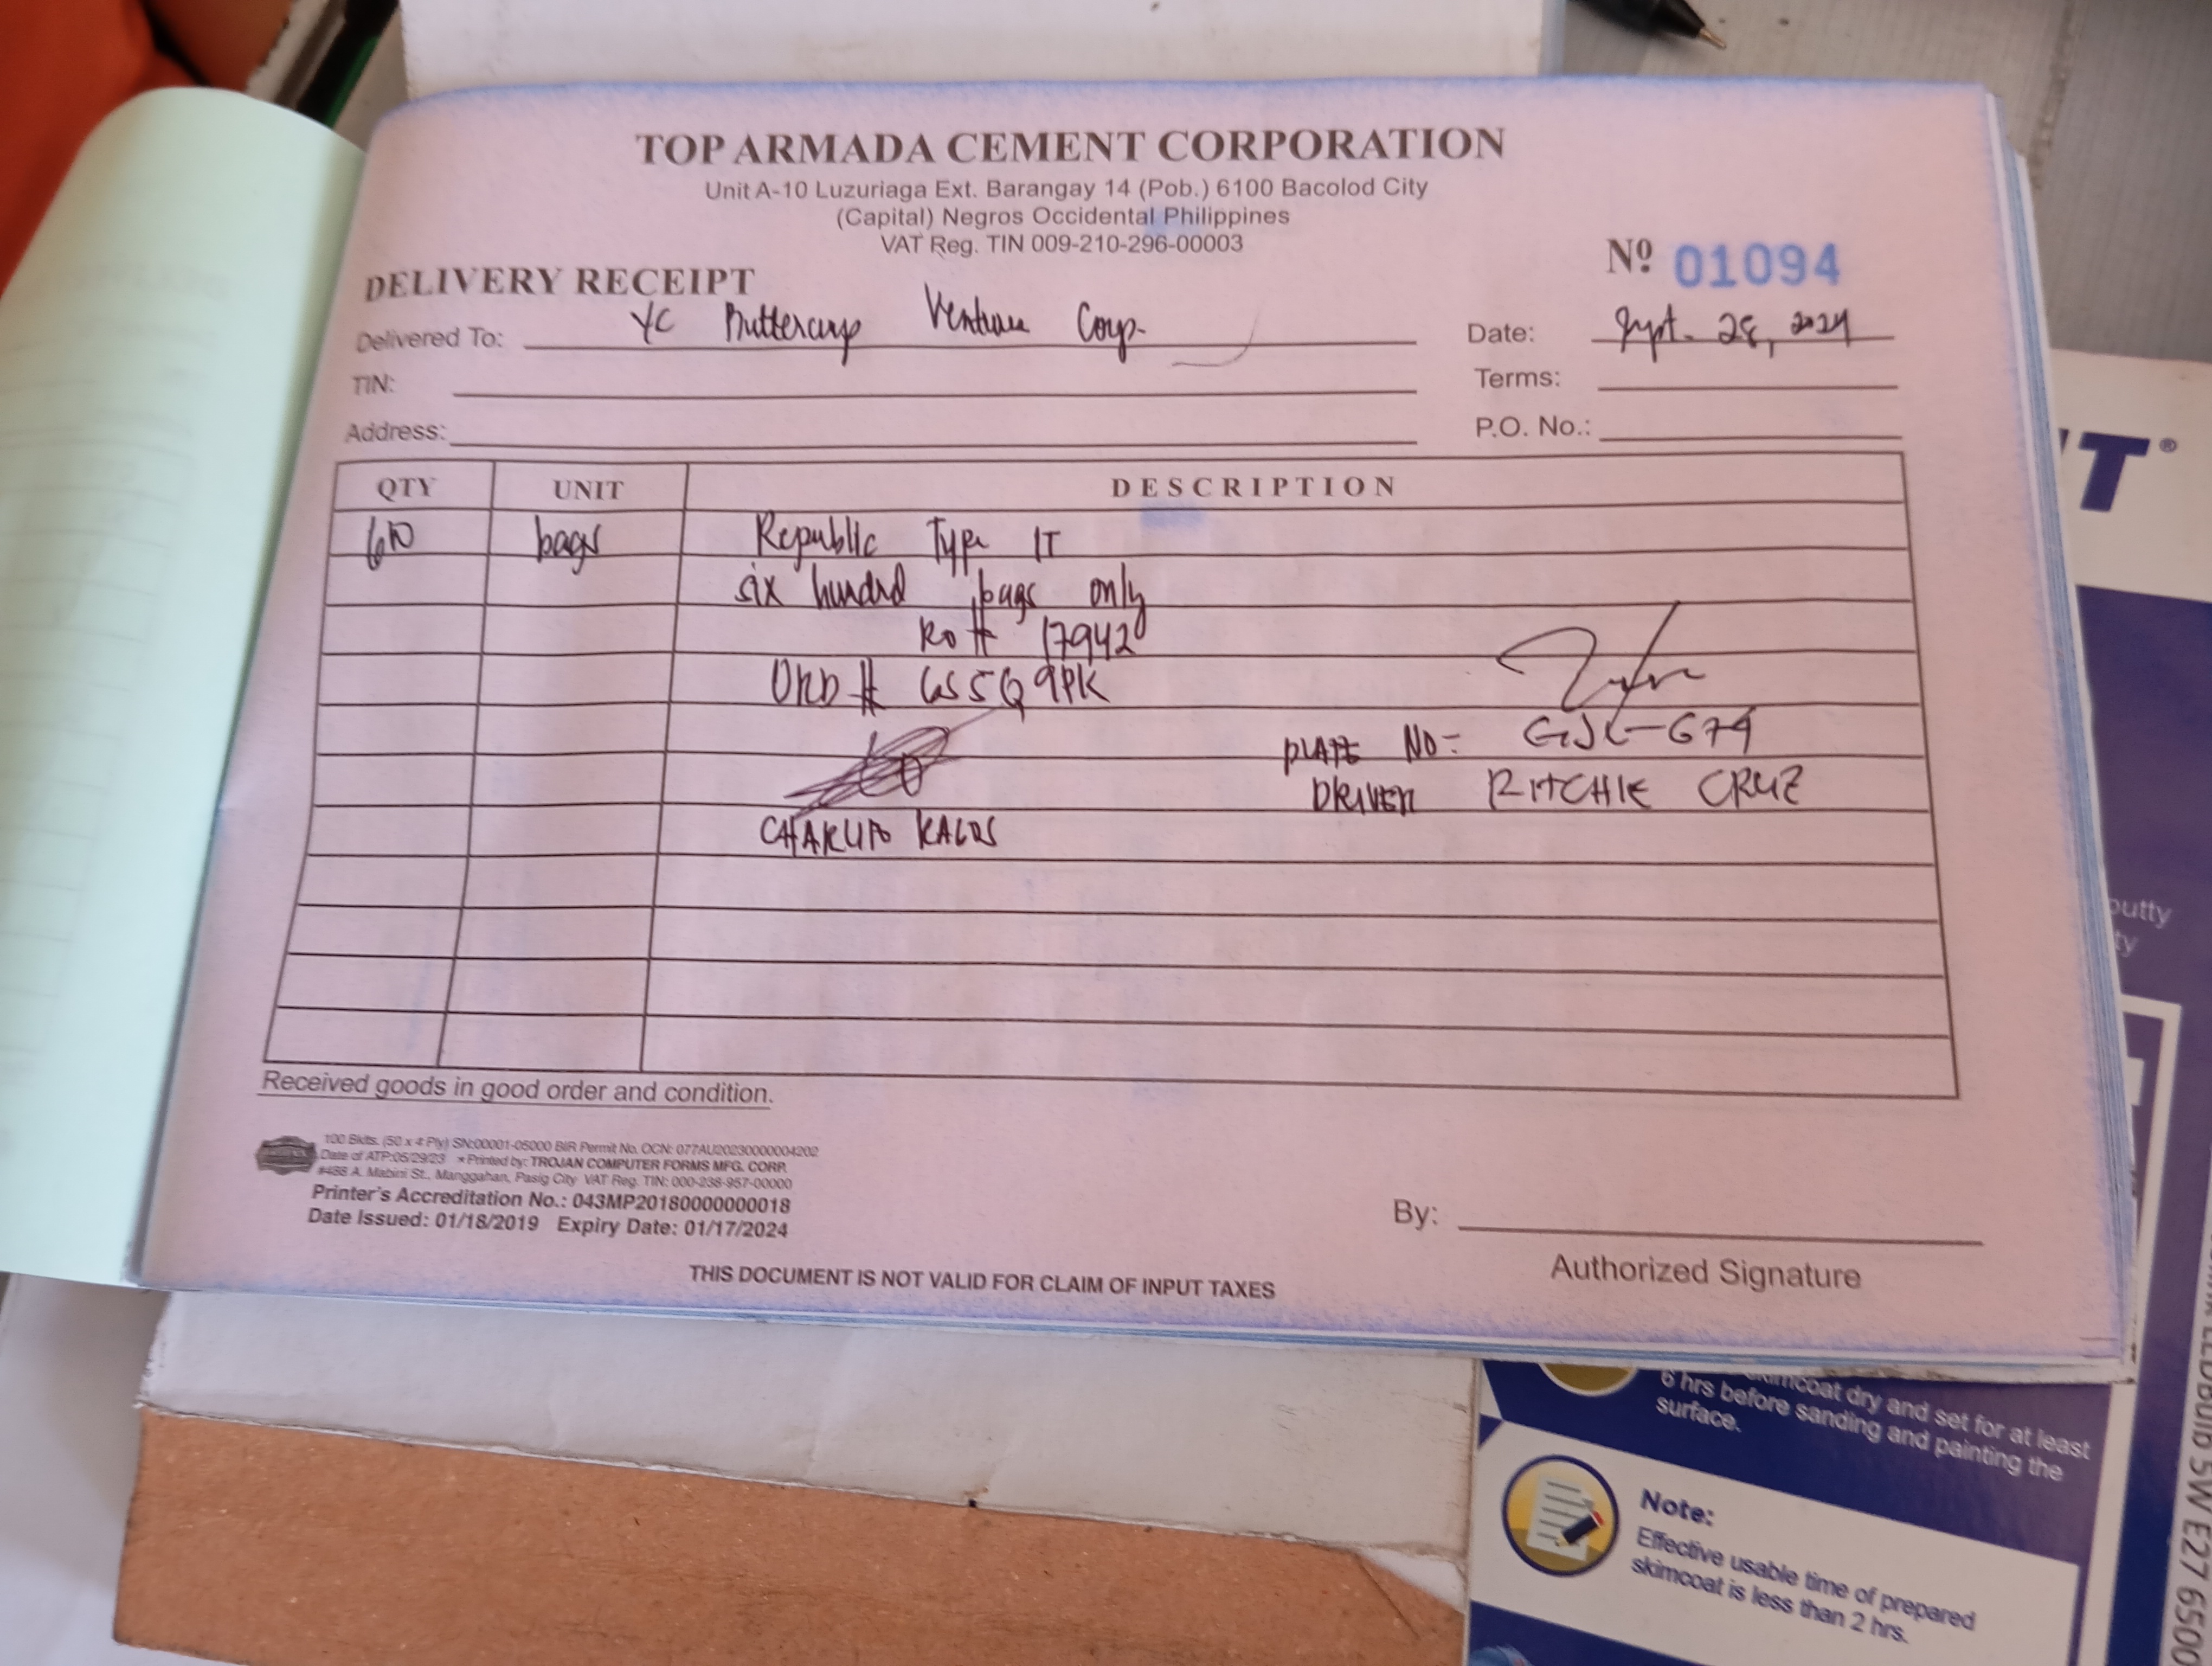 TOP ARMADA CEMENT CORPORATION
Unit A-10 Luzuriaga Ext. Barangay 14 (Pob.) 6100 Bacolod City
(Capital) Negros Occidental Philippines
VAT Reg. TIN 009-210-296-00003
Nº 01094
DELIVERY RECEIPT
Delivered To: YC Buttercup Venture Corp.
Date: Sept. 28, 2024
TIN:
Terms:
Address:
P.O. No.:
QTY UNIT DESCRIPTION
600 bags Republic Type IT
six hundrd bags only
RO # 17942
ORD # GS5Q9PK
PLATE NO= GJL-674
DRIVER RITCHIE CRUZ
Received goods in good order and condition.
100 Bklts. (50 x 4 Ply) SN:00001-05000 BIR Permit No. OCN: 077AU20230000004202
Date of ATP:05/29/23 * Printed by: TROJAN COMPUTER FORMS MFG. CORP.
#488 A. Mabini St., Manggahan, Pasig City VAT Reg. TIN: 000-238-957-00000
Printer's Accreditation No.: 043MP20180000000018
Date Issued: 01/18/2019 Expiry Date: 01/17/2024
By:
Authorized Signature
THIS DOCUMENT IS NOT VALID FOR CLAIM OF INPUT TAXES
T®
putty
ty
skimcoat dry and set for at least
6 hrs before sanding and painting the
surface.
Note:
Effective usable time of prepared
skimcoat is less than 2 hrs.
5W E27 6500